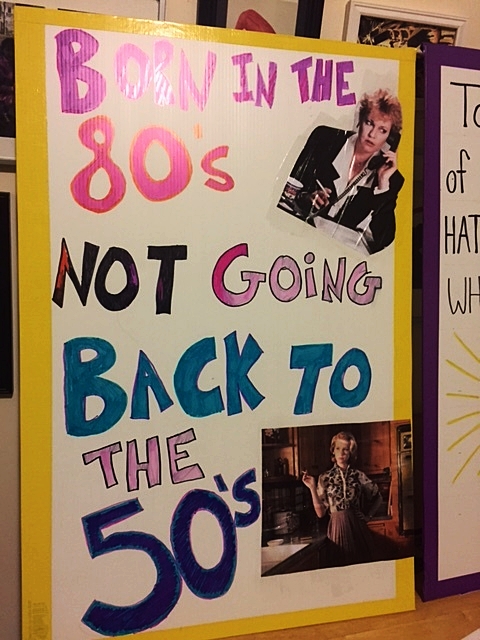 BORN IN THE
80's
NOT GOiNG
BACK TO
THE
50's
To
of
HAT
WH